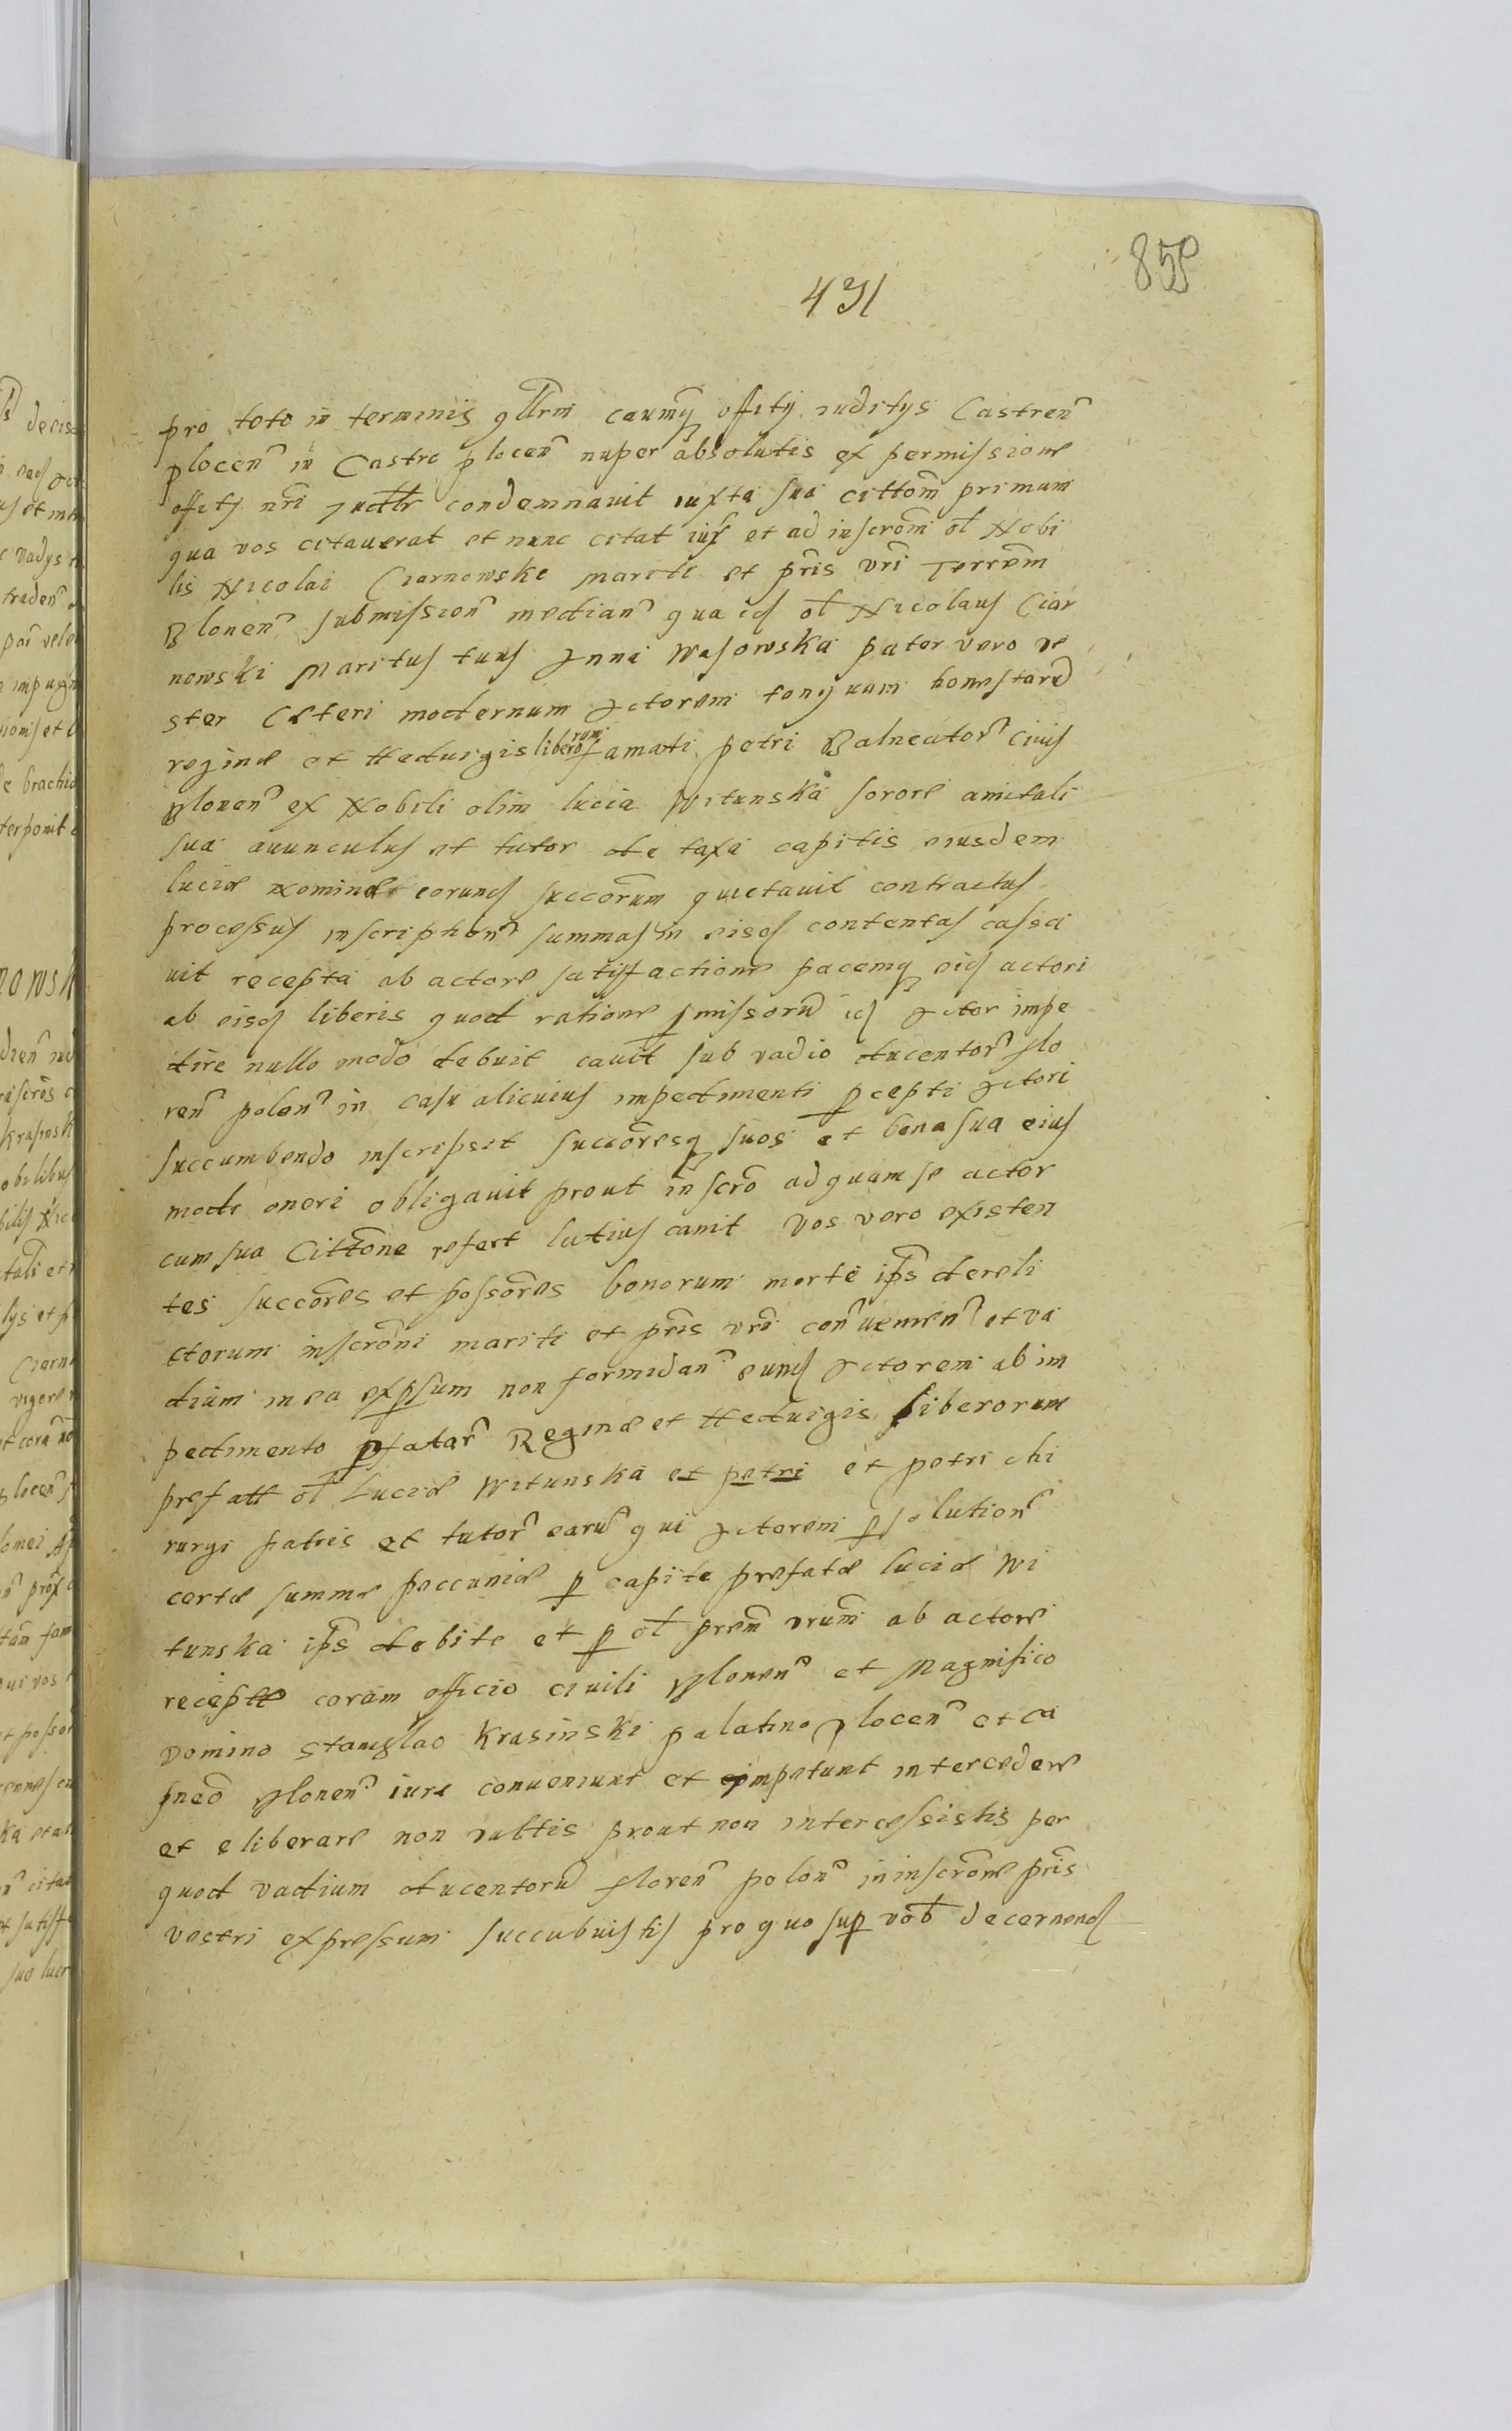 859
431
pro toto in terminis qllrm caumq offitÿ iuditÿs Castren
plocen in Castro plocen nuper absolutis ex permissione
offitÿ nri Judtlr condemnauit iuxta sua cittom primum
qua vos citauerat et nunc citat iux et ad inscrom ol Nobi
lis Nicolai Ciarnowske mariti et pris vri Terrem
Plonen submission median qua id ol Nicolaus Ciar
nowski Maritus tuus Anna Wasowska pater vero ve
ster Ceteri modernum Actorem tanquam honestaru
regine et Heduigis liberorum famati petri Balneator ciuis
plonen ex Nobili olim lucia Witunska sorore amitali
sua auunculus et tutor de taxa capitis eiusdem
lucie nomine eorund succorum quietauit contractus
processus inscription summas in eisd contentas cassa
uit recepta ab actore satisfactione pacemq eid actori
ab eisd liberis quod ratione pmissoru id Actor impe
dire nullo modo debuit cauit sub vadio ducentor flo
ren polon in casu alicuius impedimenti pcepti Actori
succumbendo inscripsit succoresq suos et bona sua eius
modi oneri obligauit prout inscro ad quam se actor
cum sua Cittone refert latius canit Vos vero existen
tes succores et possores bonorum morte ips dereli
ctorum inscroni mariti et pris vri conuenien et va
dium in ea expsum non formidan eund Actorem ab im
pedimento pfatar Regine et Heduigis liberorum
prefatt ol Lucie Witunska et petri et petri chi
rurgi patris et tutor earu qui Actorem p solution
certe summe peccunie p capite prefate lucie Wi
tunska ips debite et p ol prem vrum ab actore
recepte coram officio ciuili plonen et Magnifico
Domino Stanislao Krasinski palatino plocen et ca
pneo plonen iure conueniunt et impetunt intercedere
et eliberare non vultis prout non intercessistis per
quod vadium ducentoru floren polon in inscrone pris
vestri expressum succubuistis pro quo sup vob decernend